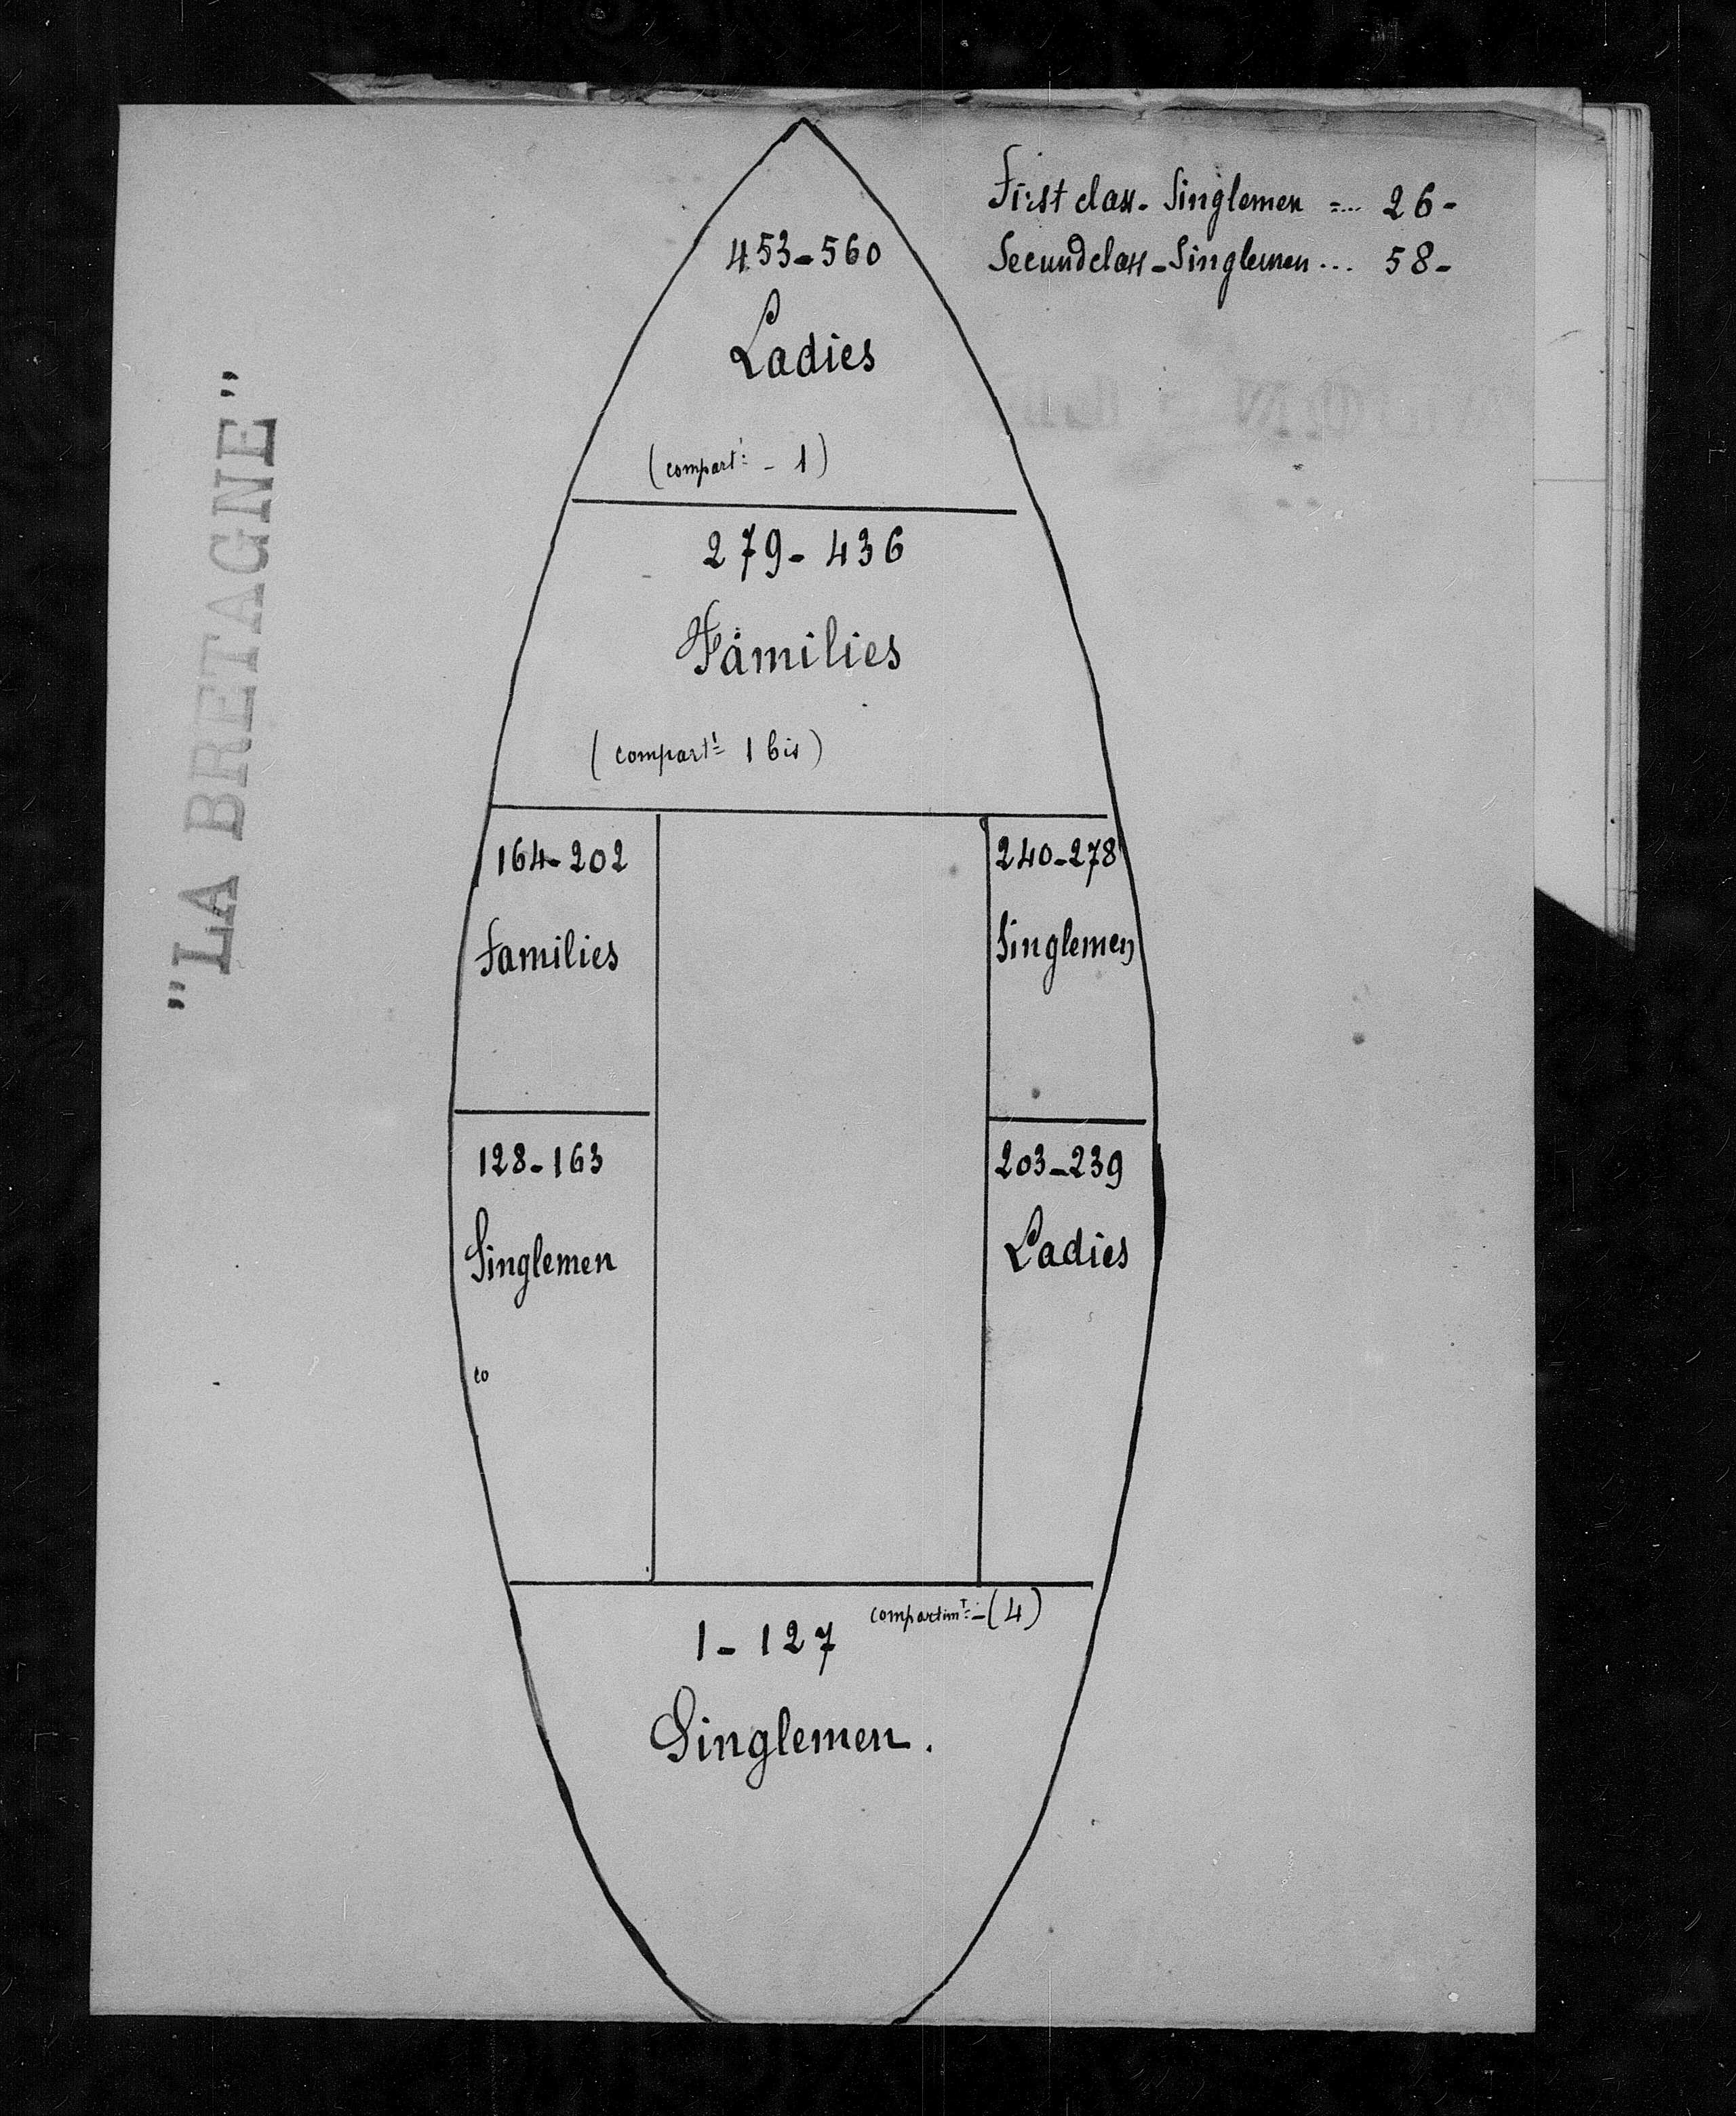 "LA BRETAGNE"
First class - Singlemen =... 26 -
Secund class - Singlemen ... 58 -
453-560
Ladies
(compart.t - 1)
279-436
Families
(compart.t 1 bis)
164-202
Families
240-278
Singlemen
128-163
Singlemen
co
203-239
Ladies
compartim.t - (4)
1-127
Singlemen.